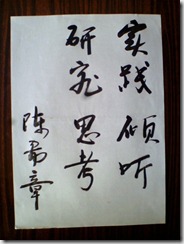 实践 倾听
研究 思考
陈 章